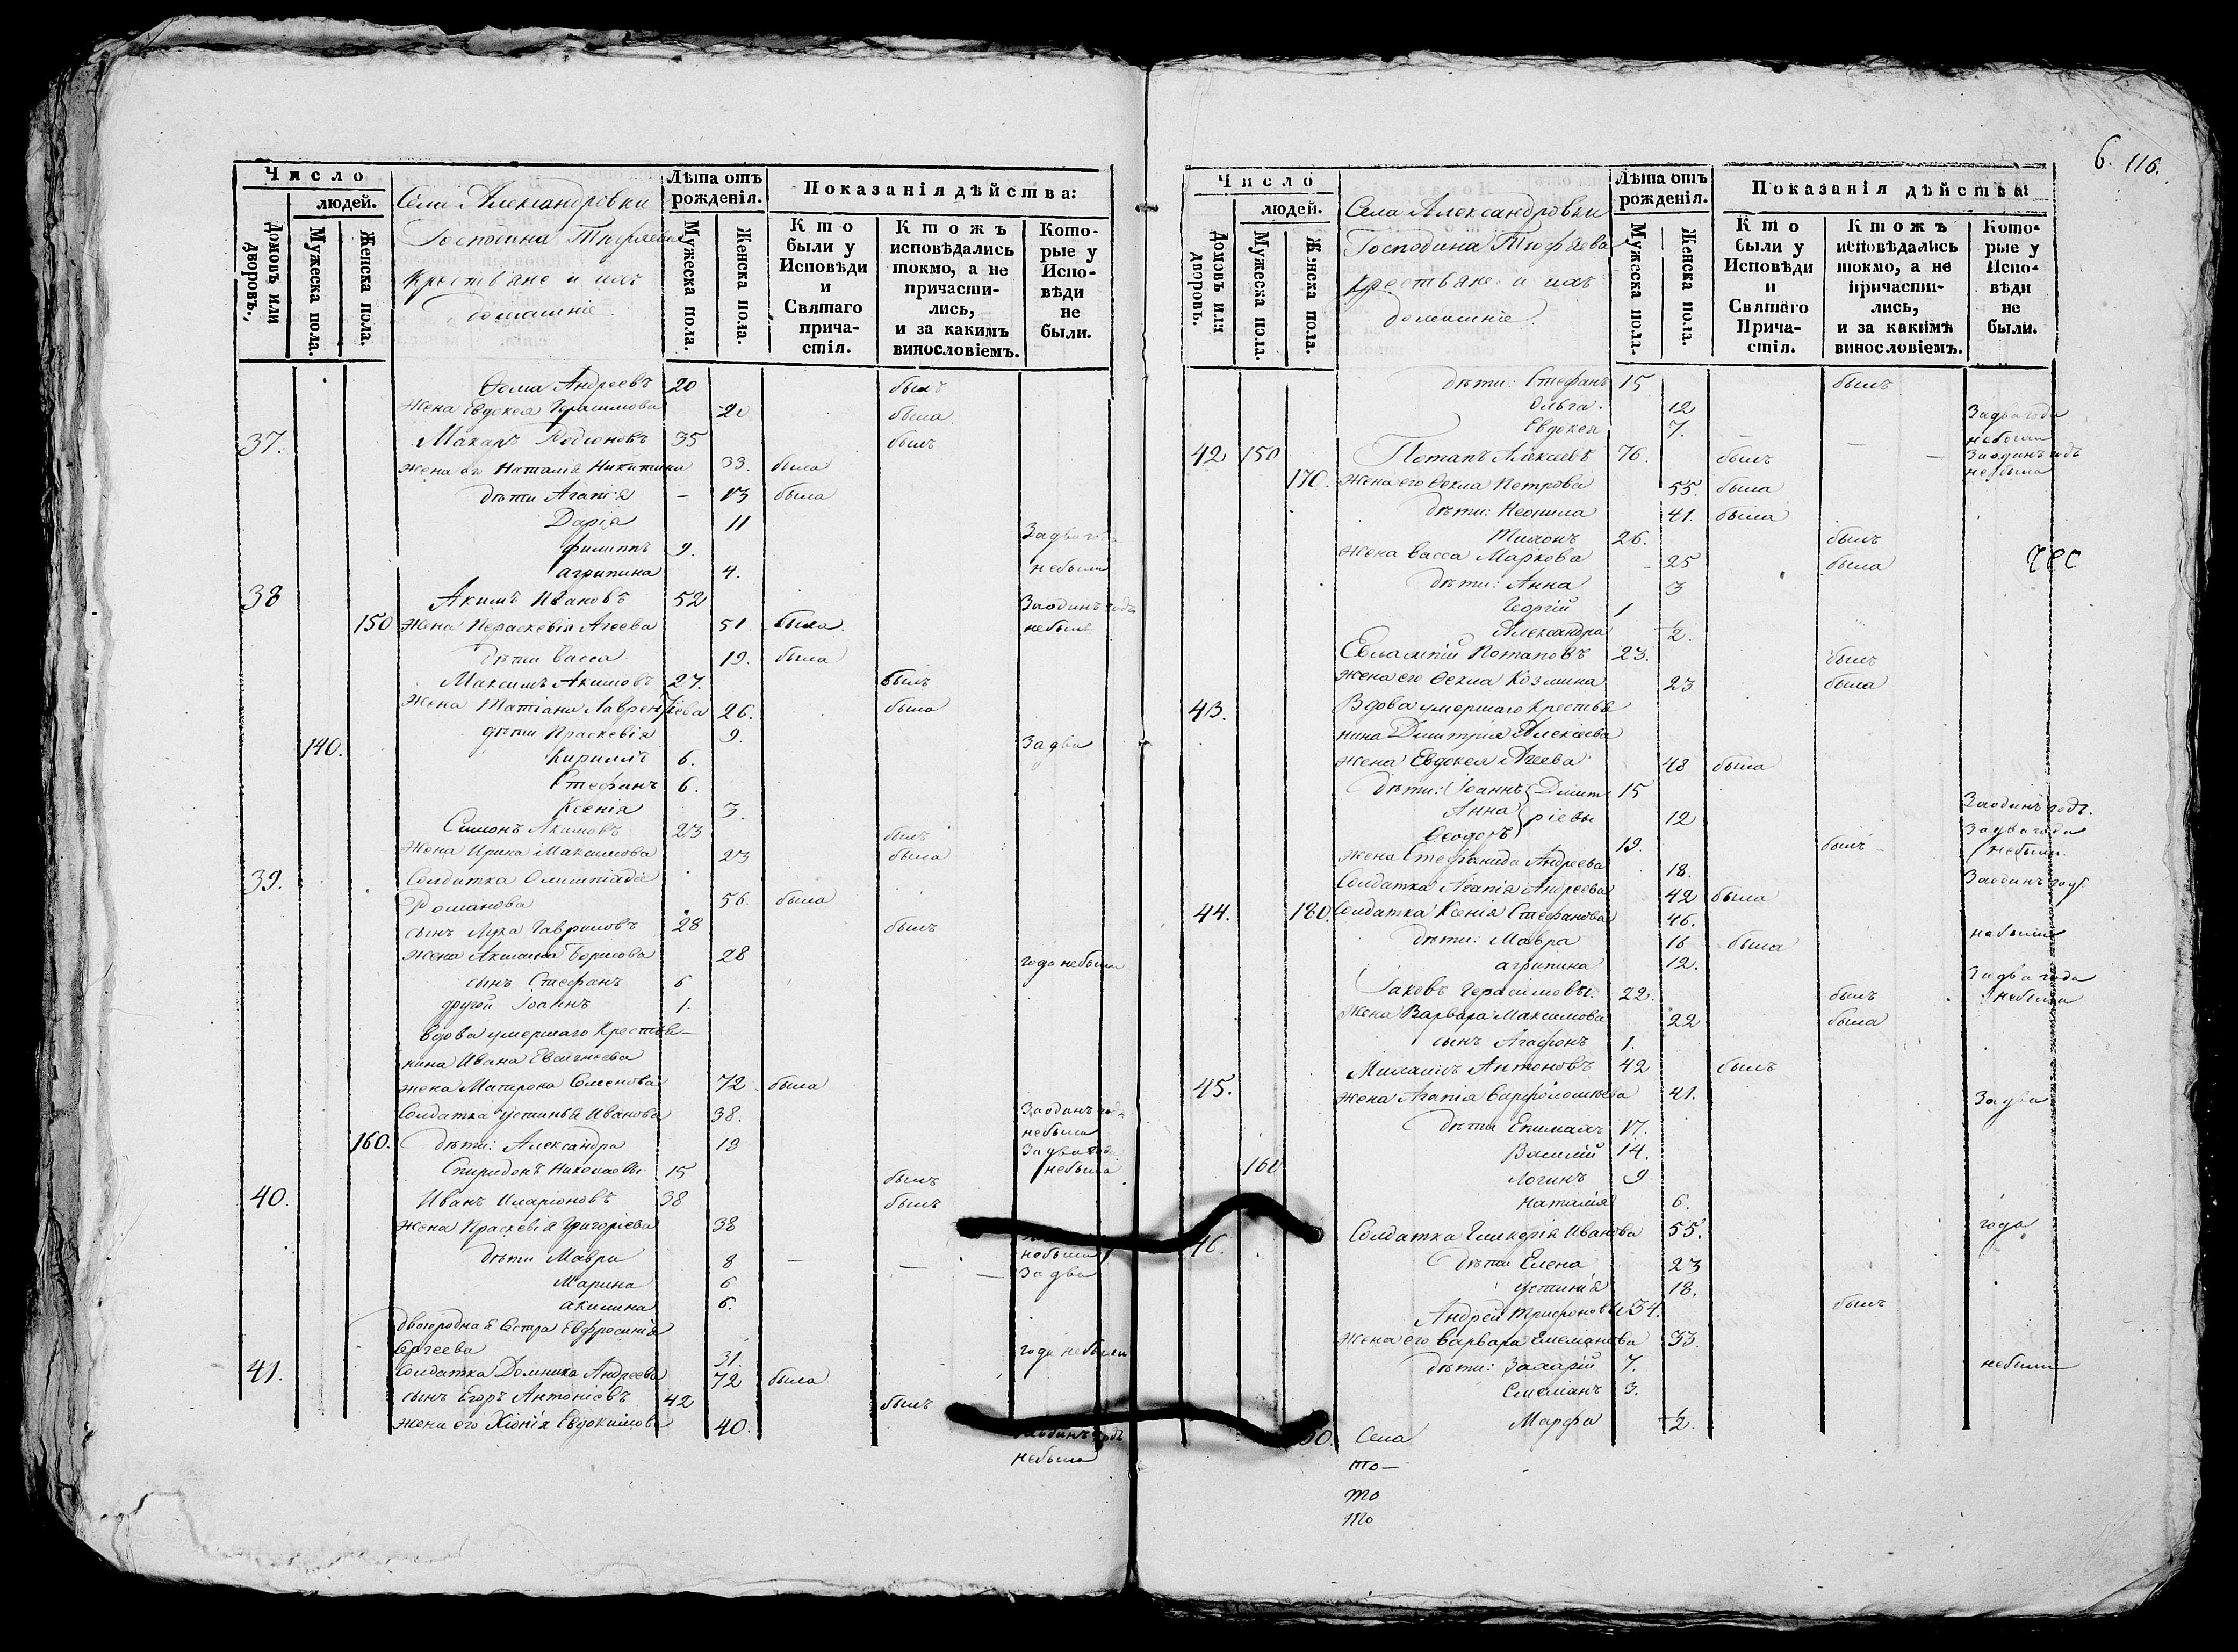 6. 116.
Число
людей.
Домовъ или дворовъ.
Мужеска пола.
Женска пола.
Села Александровки
Господина Тюфяева
крестьяне и ихъ
домашніе
Лѣта отъ рожденія.
Мужеска пола.
Женска пола.
Показанія дѣйства:
Кто были у Исповѣди и Святаго причастія.
Ктожъ исповѣдались токмо, а не причастились, и за какимъ винословіемъ.
Которые у Исповѣди не были.
Ѳома Андреевъ 20 былъ
Жена Евдокея Герасимова 20 была
37. Макаръ Родіоновъ 35 былъ
жена его Наталія Никитина 33. была
дѣти Агапія – 13 была
Дарія 11 За два года
Филиппъ 9.
Агрипина 4. небыли
38 Акимъ Ивановъ 52 Заодинъ годъ
150 Жена Параскевія Агеева 51 была небылъ
дѣти Васса 19. была
Максимъ Акимовъ 27. былъ
Жена Татіана Лаврентіева 26. была
дѣти Праскевія 9.
140. Кирилъ 6. За два
Стефанъ 6.
Ксенія 3.
Симонъ Акимовъ 23 былъ
Жена Ирина Максимова 23 была
39. Солдатка Олимпіада
Романова 56. была
сынъ Лука Гавриловъ 28 былъ
Жена Акилина Борисова 28 года небыли
сынъ Стефанъ 6
другой Іоаннъ 1.
Вдова умершаго Крестья-
нина Ивана Евстигнеева
жена Матрона Семенова 72 была
Солдатка Устинья Иванова 38. Заодинъ годъ
небыла
160. дѣти: Александра 19 За два года
Спиридонъ Николаевы 15 былъ небыла
40. Иванъ Иларіоновъ 38 былъ
Жена Праскевія Григоріева 38
дѣти Мавра 8 – – небыла
Марина 6 – За два
Акилина 6.
двоюродная Сестра Евфросинія
Сергеева 31. года небыли
41. Солдатка Домника Андреева 72 была
сынъ Егоръ Антоніевъ 42 былъ
жена его Хіонія Евдокимова 40. Заодинъ годъ
небыла
Число
людей.
Домовъ или дворовъ.
Мужеска пола.
Женска пола.
Села Александровки
Господина Тюфяева
Крестьяне и ихъ
домашніе.
Лѣта отъ рожденія.
Мужеска пола.
Женска пола.
Показанія дѣйства
Кто были у Исповѣди и Святаго Причастія.
Ктожъ исповѣдались токмо, а не причастились, и за какимъ винословіемъ.
Которые у Исповѣди не были.
дѣти: Стефанъ 15 былъ
Ольга 12 За два года
Евдокея 7. – – небыли
42 150 Потапъ Алексеевъ 76. былъ – Заодинъ годъ
небыла
170. жена его Ѳекла Петрова 55. была
дѣти: Неонила 41. была
Тимонъ 26. былъ
жена Васса Маркова 25 была
дѣти: Анна 3
Георгій 1
Александра 1/2.
Евлампій Потаповъ 23. былъ
жена его Ѳекла Козмина 23 была
43. Вдова умершаго крестья
нина Димитрія Алексеева
жена Евдокея Агеева 48 была
дѣти: Іоаннъ Димит 15
Анна ріевы 12 Заодинъ годъ.
Ѳеодоръ 19. былъ За два года
жена Стефанида Андреева 18. небыли
Солдатка Агапія Андреева 42 была Заодинъ годъ
44. 180. Солдатка Ксенія Стефанова 46.
дѣти: Мавра 16 была небыли
Агрипина 12.
Іаковъ Герасимовы 22. былъ За два года
небыла
Жена Варвара Максимова 22 была
сынъ Агафонъ 1.
45. Михаилъ Антоновъ 42 былъ
жена Агапія Варфоломѣева 41. За два
дѣти Епимахъ 17.
Василій 14.
160 Логинъ 9
Наталія 6.
46. Солдатка Гликерія Иванова 55. года
дѣти Елена 23
Устинія 18.
Андрей Трифоновы 34. былъ
Жена его Варвара Емеліанова 33.
дѣти: Захарій 7. небыли
Емеліанъ 3.
Марфа 1/2.
Села
то–
то
то